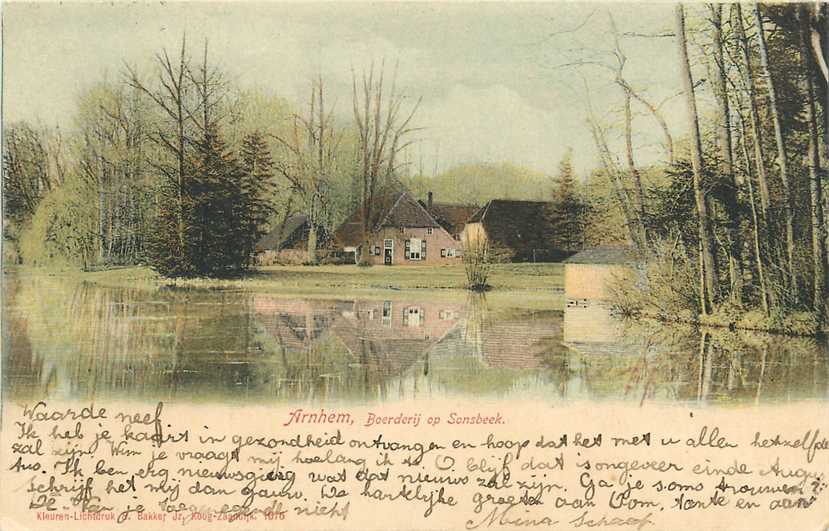 Arnhem, Boerderij op Sonsbeek.
Waarde neef
Ik heb je kaart in gezondheid ontvangen en hoop dat het met u allen hetzelfde
zal zijn. Wim je vraagt mij hoelang ik te O blijf dat is ongeveer einde Augu
tus. Ik ben erg nieuwsgierig wat dat nieuws zal zijn. Ga je soms trouwen?
Schrijf het mij dan gauw. De hartelijke groeten aan Oom, tante en aan
nicht
Mina Schaap
Kleuren-Lichtdruk J. Bakker Jz, Koog-Zaandijk.